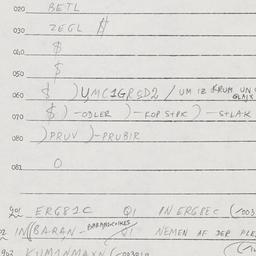 020 BETL
030 ZEGL $
040 $
050 $
060 $ ) UMC1GRSD2 / UM IZ KRUM UN GLAJX
070 $ ) -ODLER ) -KOP STPK ) -STLAK
080 ) PRUV ) -PRUBIR
081 0
901 ERG81C QI IN ERG8EC (/003
902 IN (BARAN- QI NEMEN AF DER
902 KUM1NMAXN (/003010